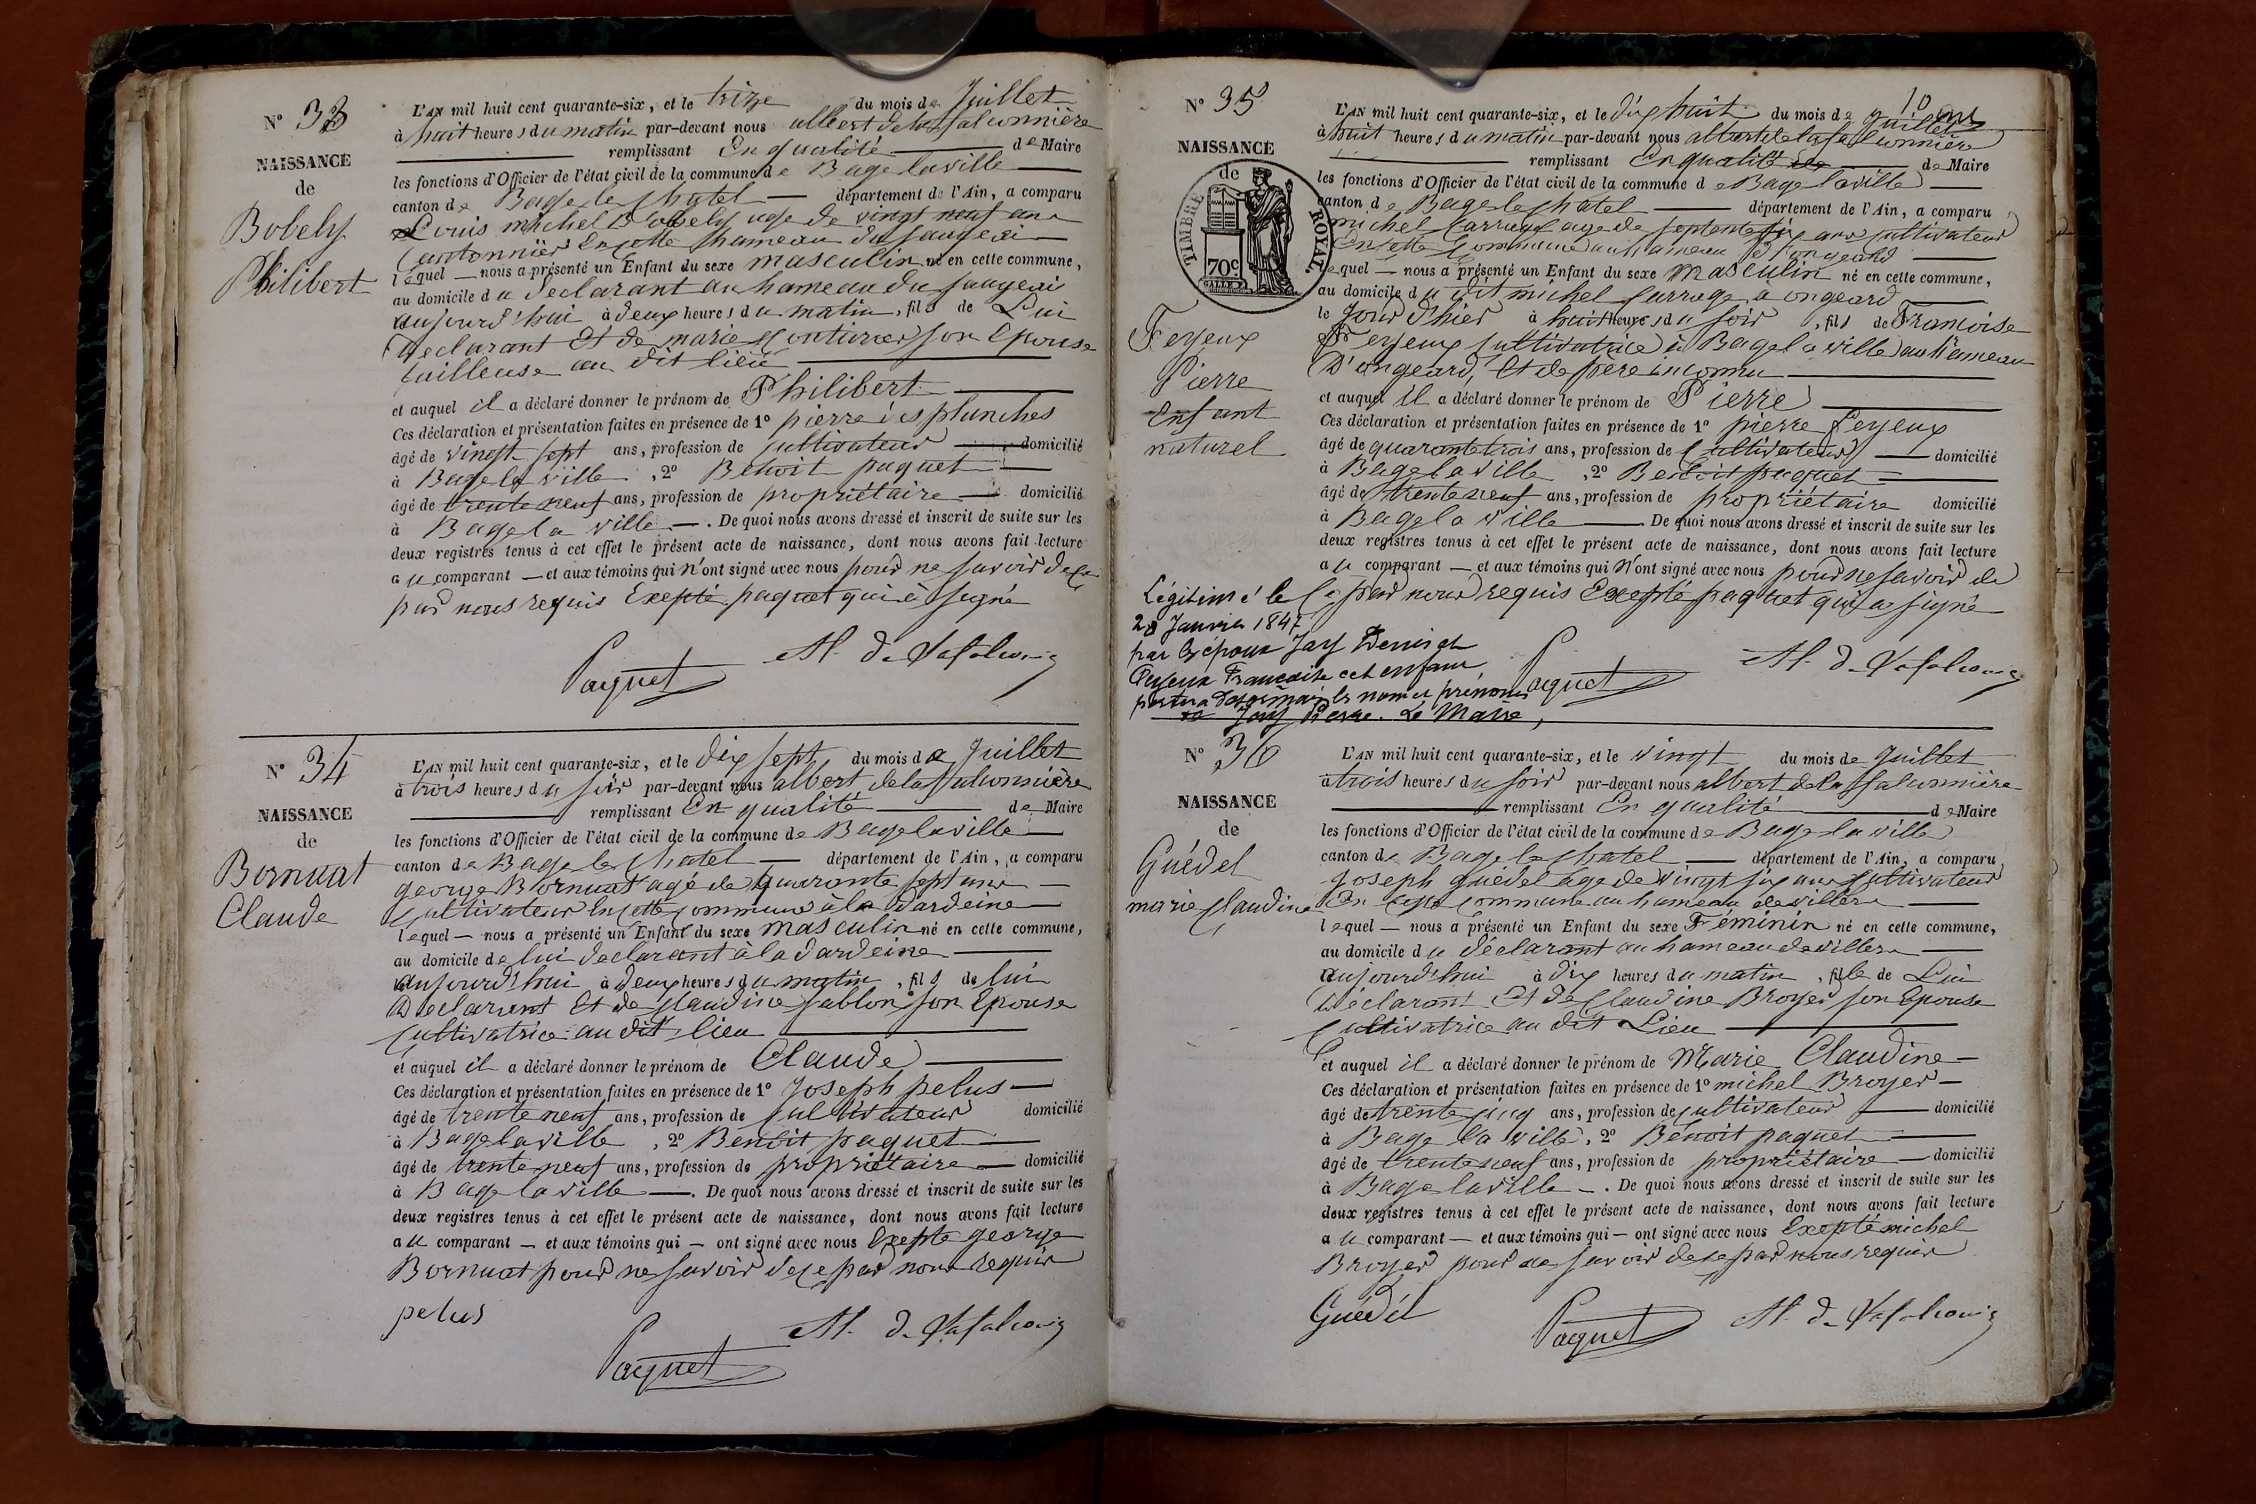 N° 33
NAISSANCE
de
Bobely
Philibert
L'AN mil huit cent quarante-six, et le treize du mois de Juillet
à huit heures du matin par-devant nous albert de la falconnière
remplissant En qualité de Maire
les fonctions d'Officier de l'état civil de la commune de Bage la ville
canton de Bage le chatel département de l'Ain, a comparu
Louis michel Bobely age de vingt neuf ans
cantonnier En cette hameau du
lequel nous a présenté un Enfant du sexe masculin né en cette commune,
au domicile du Declarant au hameau du
aujourd'hui à deux heures du matin, fils de Lui
Declarant Et de marie son Epouse
tailleuse au dit lieu
et auquel il a déclaré donner le prénom de Philibert
Ces déclaration et présentation faites en présence de 1° pierre des planches
âgé de vingt sept ans, profession de cultivateur domicilié
à Bage la ville, 2° Benoit paquet
âgé de trente neuf ans, profession de propriétaire domicilié
à Bage la ville. De quoi nous avons dressé et inscrit de suite sur les
deux registres tenus à cet effet le présent acte de naissance, dont nous avons fait lecture
au comparant et aux témoins qui n'ont signé avec nous pour ne savoir de ce
par nous requis Excepté paquet qui a signé
Paquet Al. de Lafalconni
N° 34
NAISSANCE
de
Bornuat
Claude
L'AN mil huit cent quarante-six, et le dix sept du mois de Juillet
à trois heures du soir par-devant nous albert de la falconnière
remplissant En qualité de Maire
les fonctions d'Officier de l'état civil de la commune de Bage la ville
canton de Bage le chatel département de l'Ain, a comparu
george Bornuat agé de quarante sept ans
cultivateur En cette commune à la dardeine
lequel nous a présenté un Enfant du sexe masculin né en cette commune,
au domicile de lui declarant à la dardeine
aujourd'hui à deux heures du matin, fils de lui
Declarant Et de Claudine sablon son Epouse
cultivatrice au dit lieu
et auquel il a déclaré donner le prénom de Claude
Ces déclaration et présentation faites en présence de 1° Joseph pelus
âgé de trente neuf ans, profession de cultivateur domicilié
à Bage la ville, 2° Benoit paquet
âgé de trente neuf ans, profession de propriétaire domicilié
à Bage la ville. De quoi nous avons dressé et inscrit de suite sur les
deux registres tenus à cet effet le présent acte de naissance, dont nous avons fait lecture
au comparant et aux témoins qui ont signé avec nous Excepté george
Bornuat pour ne savoir de ce par nous requis
pelus
Paquet Al. de Lafalconni
10
N° 35
NAISSANCE
de
TIMBRE ROYAL.
70c
Feyeux
Pierre
Enfant
naturel
L'AN mil huit cent quarante-six, et le dix huit du mois de Juillet
à huit heures du matin par-devant nous albert de la falconnière
remplissant En qualité de Maire
les fonctions d'Officier de l'état civil de la commune de Bage la ville
canton de Bage le chatel département de l'Ain, a comparu
michel Carruge age de septante six ans cultivateur
En cette Commune au hameau d'ongeard
lequel nous a présenté un Enfant du sexe masculin né en cette commune,
au domicile du dit michel Carruge à ongeard
le Jour d'hier à huit heures du soir, fils de Francoise
Feyeux cultivatrice à Bage la ville au hameau
D'ongeard, Et de père inconnu
et auquel il a déclaré donner le prénom de Pierre
Ces déclaration et présentation faites en présence de 1° pierre feyeux
âgé de quarante trois ans, profession de Cultivateur domicilié
à Bage la ville, 2° Benoit paquet
âgé de trente neuf ans, profession de propriétaire domicilié
à Bage la ville De quoi nous avons dressé et inscrit de suite sur les
deux registres tenus à cet effet le présent acte de naissance, dont nous avons fait lecture
au comparant et aux témoins qui n'ont signé avec nous pour ne savoir de
Ce par nous requis Excepté paquet qui a signé
Légitimé le
28 Janvier 1847
par les époux Jay Denis et
Feyeux Francoise cet enfant
portera desormais les nom et prénoms
de Jay Pierre. Le Maire,
Paquet Al. de Lafalconni
N° 36
NAISSANCE
de
Guédel
marie Claudine
L'AN mil huit cent quarante-six, et le vingt du mois de Juillet
à trois heures du soir par-devant nous albert de la falconnière
remplissant En qualité de Maire
les fonctions d'Officier de l'état civil de la commune de Bage la ville
canton de Bage le chatel département de l'Ain, a comparu
Joseph guédel age de vingt six ans cultivateur
En cette commune au hameau de villers
lequel nous a présenté un Enfant du sexe Féminin né en cette commune,
au domicile du déclarant au hameau de villers
aujourd'hui à dix heures du matin, fille de Lui
Déclarant Et de Claudine Broyer son Epouse
cultivatrice au dit Lieu
et auquel il a déclaré donner le prénom de Marie Claudine
Ces déclaration et présentation faites en présence de 1° michel Broyer
âgé de trente cinq ans, profession de cultivateur domicilié
à Bage la ville, 2° Bénoit paquet
âgé de trente neuf ans, profession de propriétaire domicilié
à Bage la ville. De quoi nous avons dressé et inscrit de suite sur les
deux registres tenus à cet effet le présent acte de naissance, dont nous avons fait lecture
au comparant et aux témoins qui ont signé avec nous Excepté michel
Broyer pour ne savoir de ce par nous requis
Guédel
Paquet Al. de Lafalconni